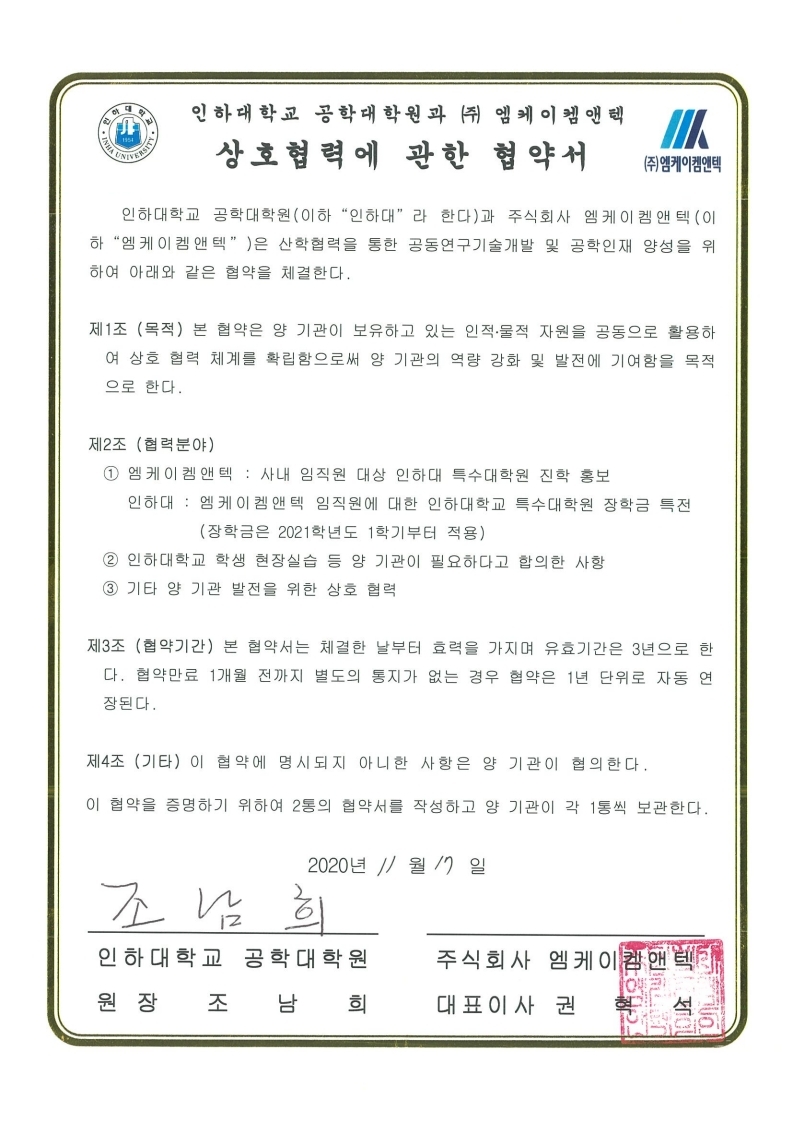 인하대학교
INHA UNIVERSITY
1954
인하대학교 공학대학원과 ㈜ 엠케이켐앤텍
상호협력에 관한 협약서
(주)엠케이켐앤텍
인하대학교 공학대학원(이하 “인하대”라 한다)과 주식회사 엠케이켐앤텍(이
하 “엠케이켐앤텍”)은 산학협력을 통한 공동연구기술개발 및 공학인재 양성을 위
하여 아래와 같은 협약을 체결한다.
제1조 (목적) 본 협약은 양 기관이 보유하고 있는 인적·물적 자원을 공동으로 활용하
여 상호 협력 체계를 확립함으로써 양 기관의 역량 강화 및 발전에 기여함을 목적
으로 한다.
제2조 (협력분야)
① 엠케이켐앤텍 : 사내 임직원 대상 인하대 특수대학원 진학 홍보
인하대 : 엠케이켐앤텍 임직원에 대한 인하대학교 특수대학원 장학금 특전
(장학금은 2021학년도 1학기부터 적용)
② 인하대학교 학생 현장실습 등 양 기관이 필요하다고 합의한 사항
③ 기타 양 기관 발전을 위한 상호 협력
제3조 (협약기간) 본 협약서는 체결한 날부터 효력을 가지며 유효기간은 3년으로 한
다. 협약만료 1개월 전까지 별도의 통지가 없는 경우 협약은 1년 단위로 자동 연
장된다.
제4조 (기타) 이 협약에 명시되지 아니한 사항은 양 기관이 협의한다.
이 협약을 증명하기 위하여 2통의 협약서를 작성하고 양 기관이 각 1통씩 보관한다.
2020년 11 월 17 일
조 남 희
인하대학교 공학대학원
원 장 조 남 희
주식회사 엠케이켐앤텍
대표이사 권 혁 석